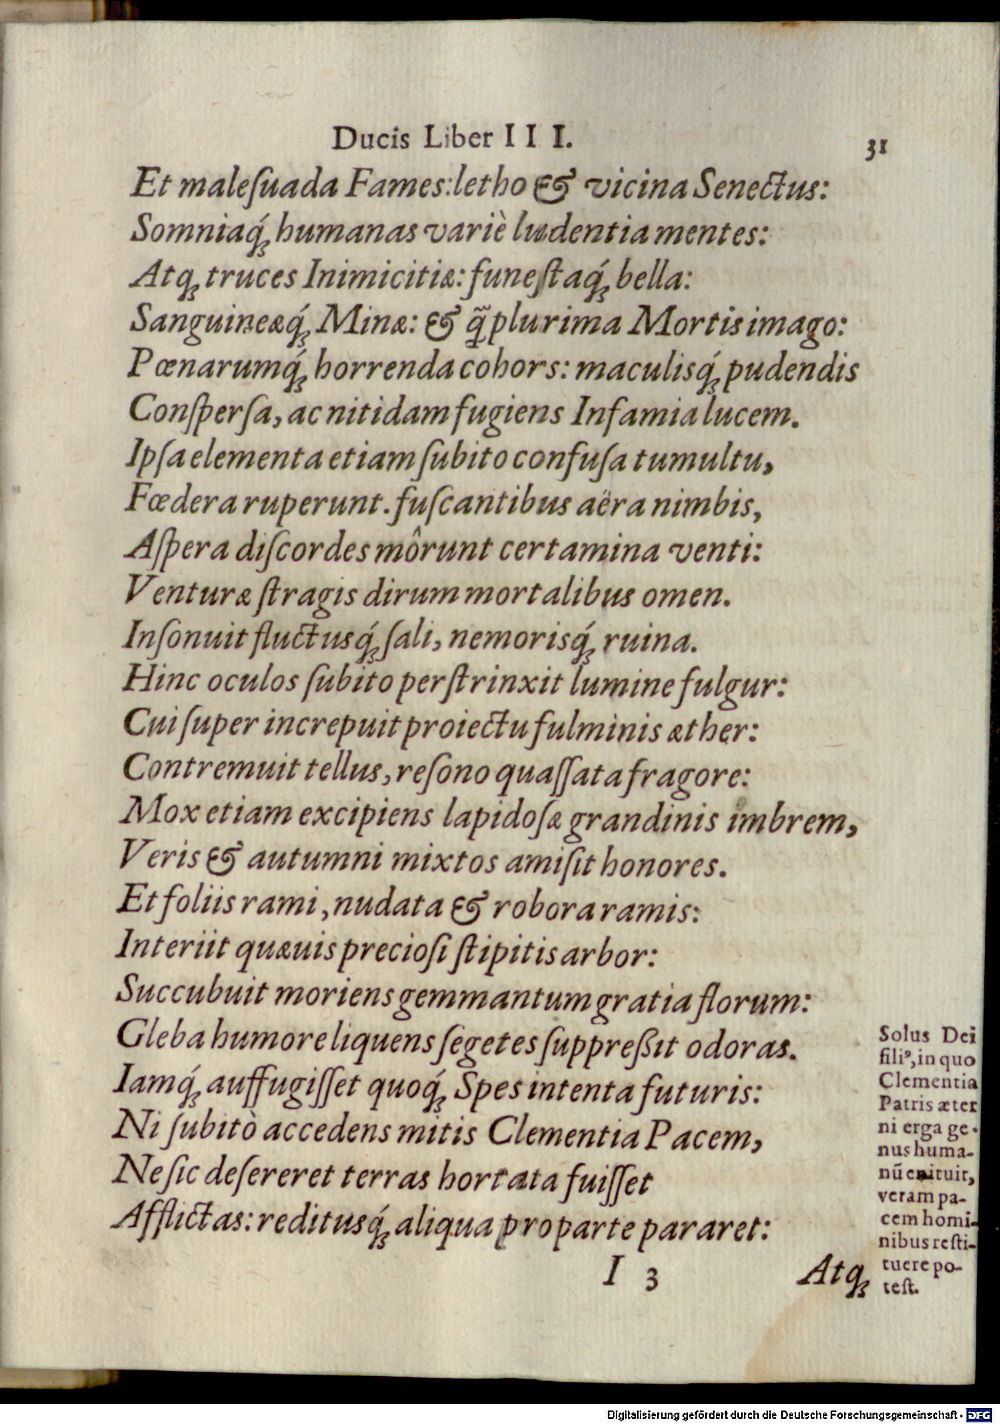 Ducis Liber I I I.
31
Et maleſuada Fames: letho & vicina Senectus:
Somniaq́; humanas variè ludentia mentes:
Atq; truces Inimicitiæ: funeſtaq́; bella:
Sanguineæq́; Minæ: & q̃ plurima Mortis imago:
Pœnarumq́; horrenda cohors: maculisq́; pudendis
Conſperſa, ac nitidam fugiens Infamia lucem.
Ipſa elementa etiam ſubito confuſa tumultu,
Fœdera ruperunt. fuſcantibus aëra nimbis,
Aſpera diſcordes môrunt certamina venti:
Venturæ ſtragis dirum mortalibus omen.
Inſonuit fluctusq́; ſali, nemorisq́; ruina.
Hinc oculos ſubito perſtrinxit lumine fulgur:
Cui ſuper increpuit proiectu fulminis æther:
Contremuit tellus, reſono quaſſata fragore:
Mox etiam excipiens lapidoſæ grandinis imbrem,
Veris & autumni mixtos amiſit honores.
Et foliis rami, nudata & robora ramis:
Interiit quæuis precioſi ſtipitis arbor:
Succubuit moriens gemmantum gratia florum:
Gleba humore liquens ſegetes ſuppreßit odoras.
Iamq́; auffugiſſet quoq́; Spes intenta futuris:
Ni ſubitò accedens mitis Clementia Pacem,
Ne ſic deſereret terras hortata fuiſſet
Afflictas: reditusq́; aliqua pro parte pararet:
Solus Dei
filiꝰ, in quo
Clementia
Patris æter
ni erga ge-
nus huma-
nũ enituit,
veram pa-
cem homi-
nibus reſti-
tuere po-
teſt.
I 3
Atq;
Digitalisierung gefördert durch die Deutsche Forschungsgemeinschaft - DFG